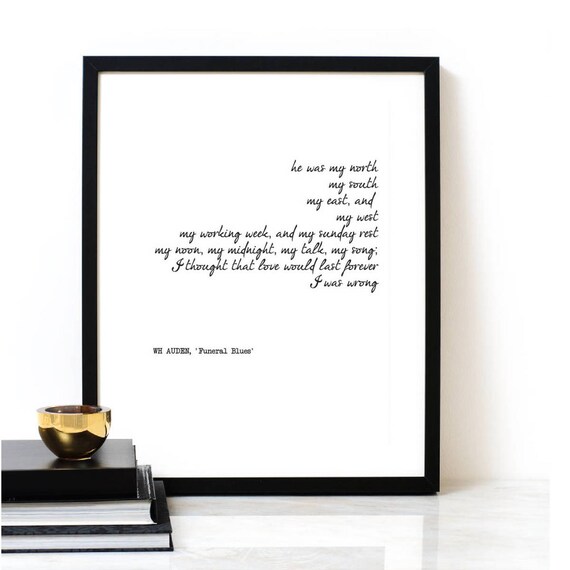 he was my north
my south
my east, and
my west
my working week, and my sunday rest
my noon, my midnight, my talk, my song;
I thought that love would last forever
I was wrong
WH AUDEN, 'Funeral Blues'